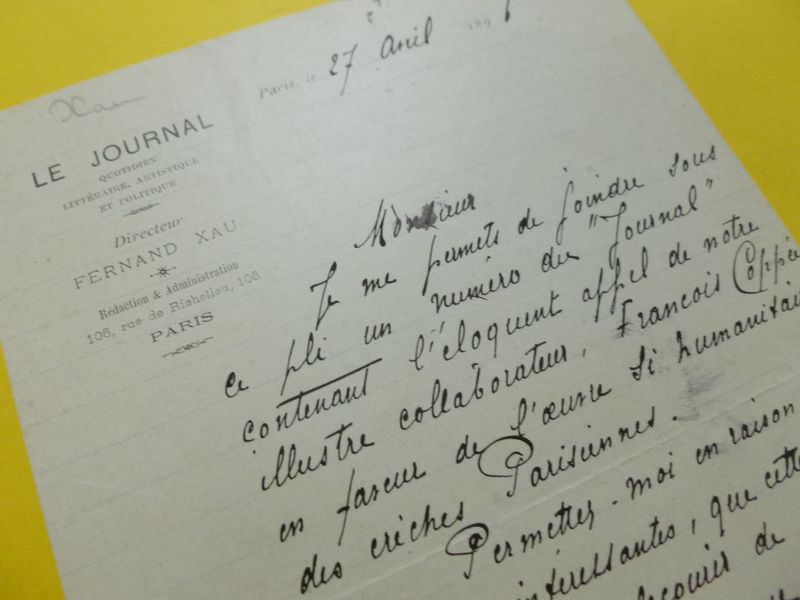 Xau
Paris, le 27 Avril 1896
LE JOURNAL
QUOTIDIEN
LITTÉRAIRE, ARTISTIQUE
ET POLITIQUE
Directeur
FERNAND XAU
Rédaction & Administration
106, rue de Richelieu, 106
PARIS
Monsieur
Je me permets de joindre sous
ce pli un numéro du "Journal"
contenant l'éloquent appel de notre
illustre collaborateur, François Coppée
en faveur de l'œuvre si humanitai
des crèches Parisiennes.
Permettez-moi en raison
intéressantes, que cette
de